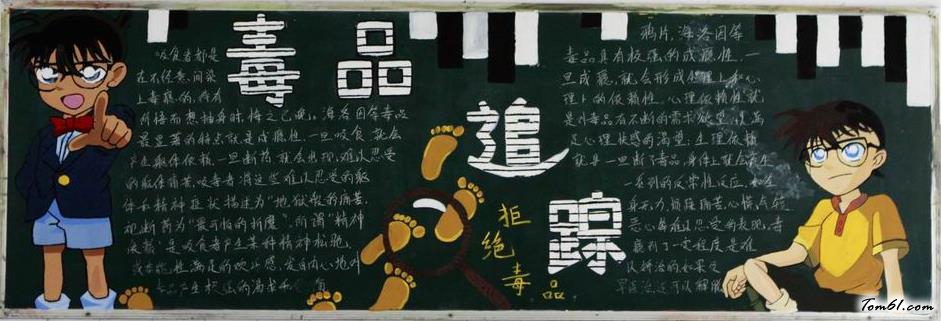 毒品
追
踪
吸食者都是
在不经意间染
上毒瘾的,待有
所悟而想抽身时,悔之已晚。海洛因等毒品
最显著的特点就是成瘾性,一旦吸食,就会
产生躯体依赖,一旦断药,就会出现难以忍受
的躯体痛苦,吸毒者将这些难以忍受的躯
体和精神症状描述为"地狱般的痛苦
视断药为"最可怕的折磨"。所谓"精神
依赖"是吸食者产生某种精神松弛,
满足的欣快感,发自内心地对
毒品产生
拒
绝
毒
品
鸦片,海洛因等
毒品具有极强的成瘾性,一
旦成瘾,就会形成生理上和心
理上的依赖性。心理依赖性就
是对毒品有不断的需求欲望,
足心理快感的渴望;生理依赖
就是一旦断了毒品,身体上就会产生
一系列的反常性反应,如全
身无力,
恶心等难以忍受的表现,毒
瘾到了一定程度是难
以
Tom61.com